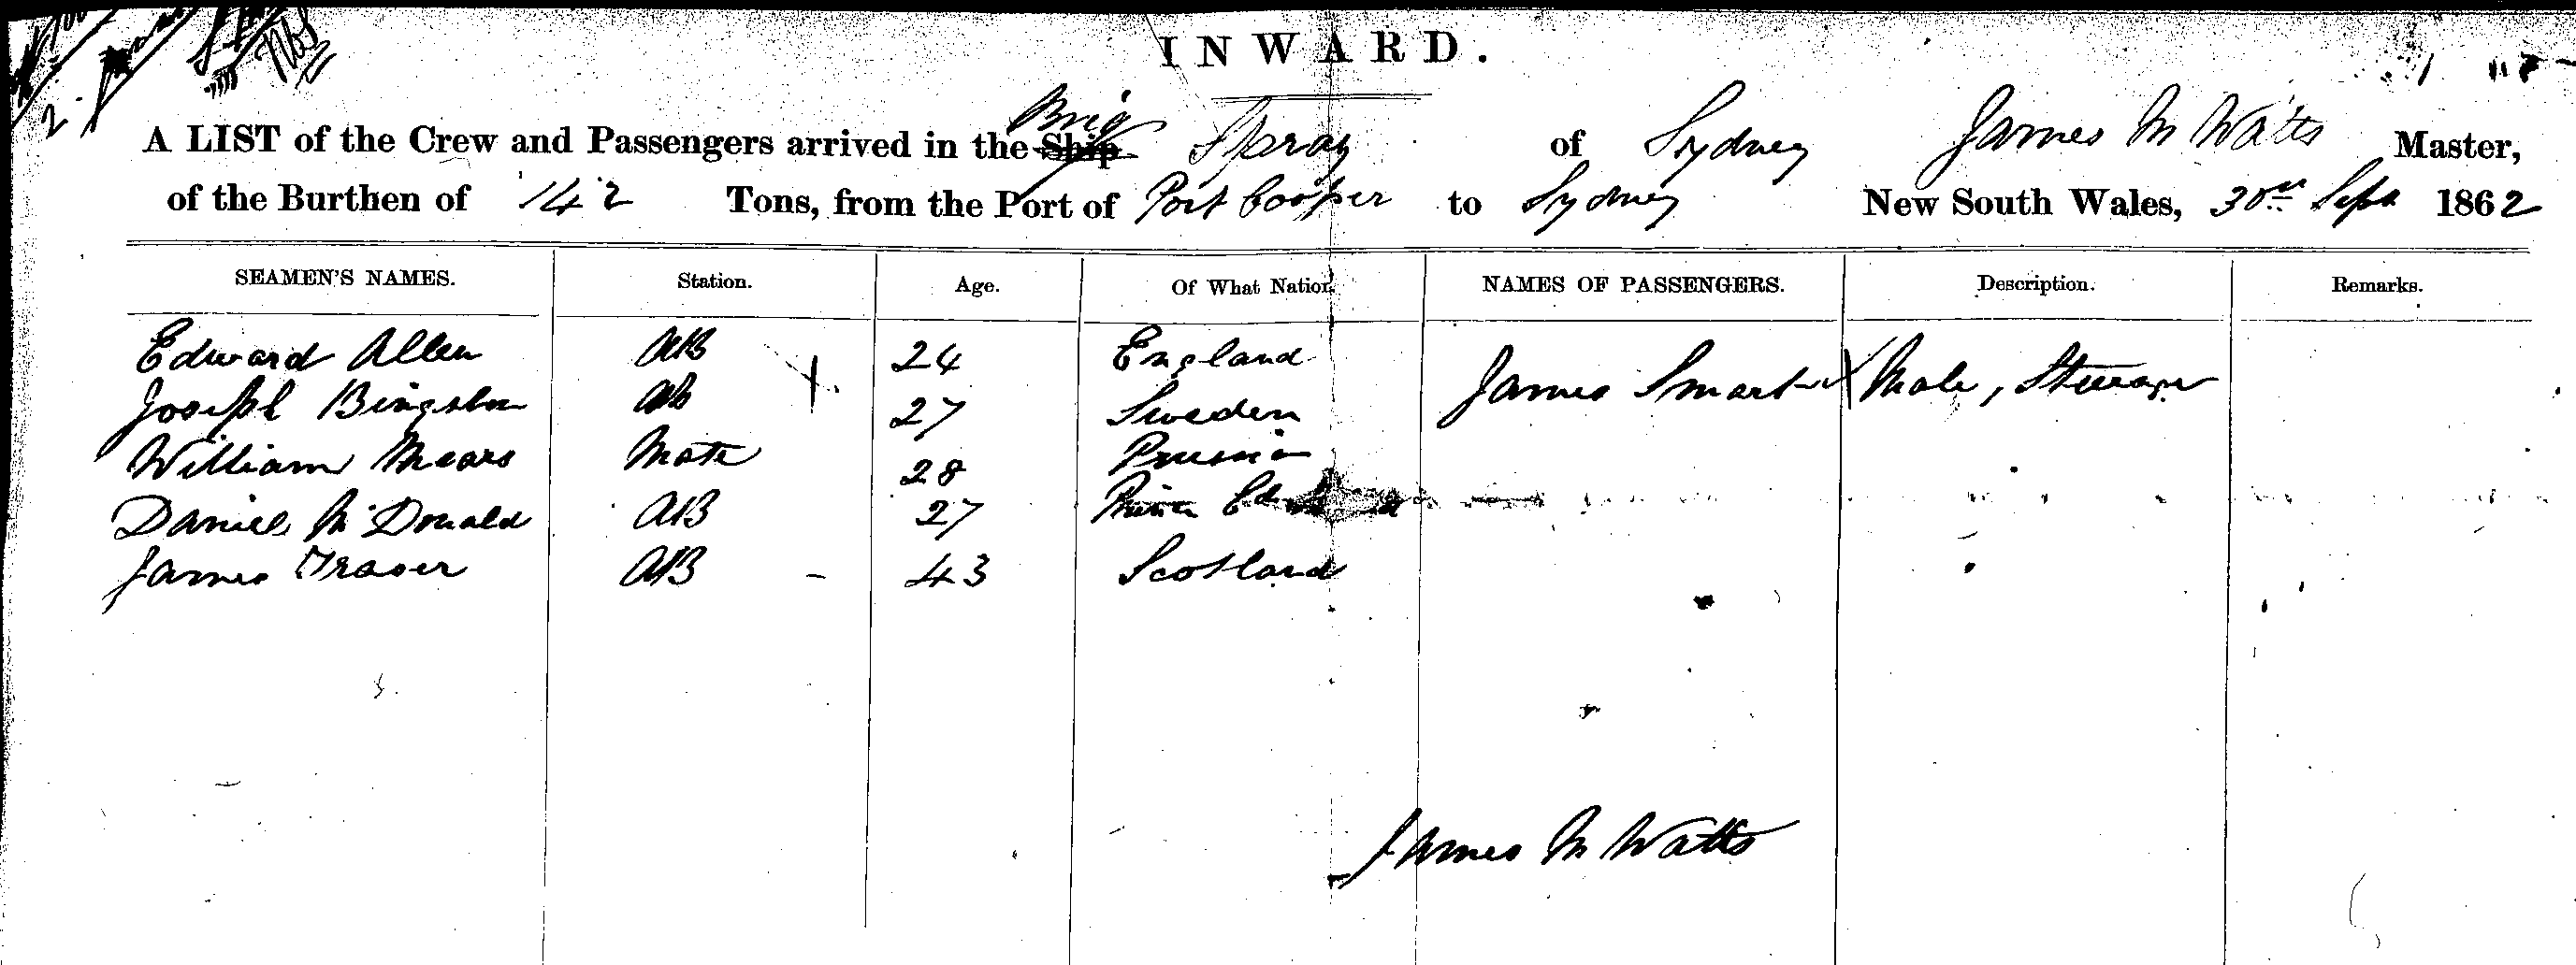 INWARD.
A LIST of the Crew and Passengers arrived in the Brig Spray of Sydney James M Watts Master,
of the Burthen of 142 Tons, from the Port of Port Cooper to Sydney New South Wales, 30th Sepr 1862
SEAMEN'S NAMES. Station. Age. Of What Nation. NAMES OF PASSENGERS. Description. Remarks.
Edward Allen AB 24 England
James Smart Male, Steerage
Joseph AB 27 Sweden
William Mears Mate 28 Prussia
Daniel McDonald AB 27 Prince
James Fraser AB - 43 Scotland
James M Watts